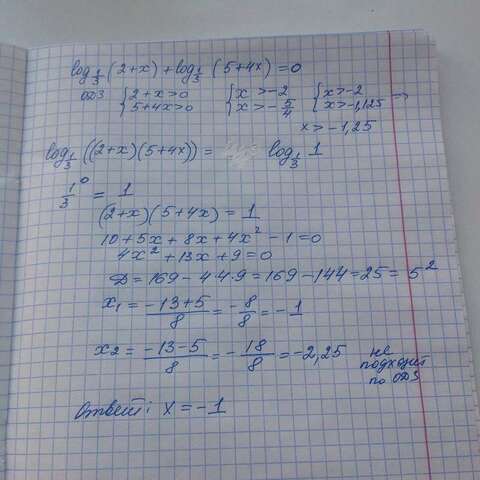 log_{1/3}(2+x)+log_{1/3}(5+4x)=0
ОДЗ {2+x>0 {x>-2 {x>-2
{5+4x>0 {x>-5/4 {x>-1,125 =>
x>-1,25
log_{1/3}((2+x)(5+4x))= log_{1/3} 1
1/3^0 = 1
(2+x)(5+4x)=1
10+5x+8x+4x²-1=0
4x²+13x+9=0
D=169-4·4·9=169-144=25=5²
x₁=(-13+5)/8=-8/8=-1
x2=(-13-5)/8=-18/8=-2,25 не
подходит
по ОДЗ
Ответ: x=-1